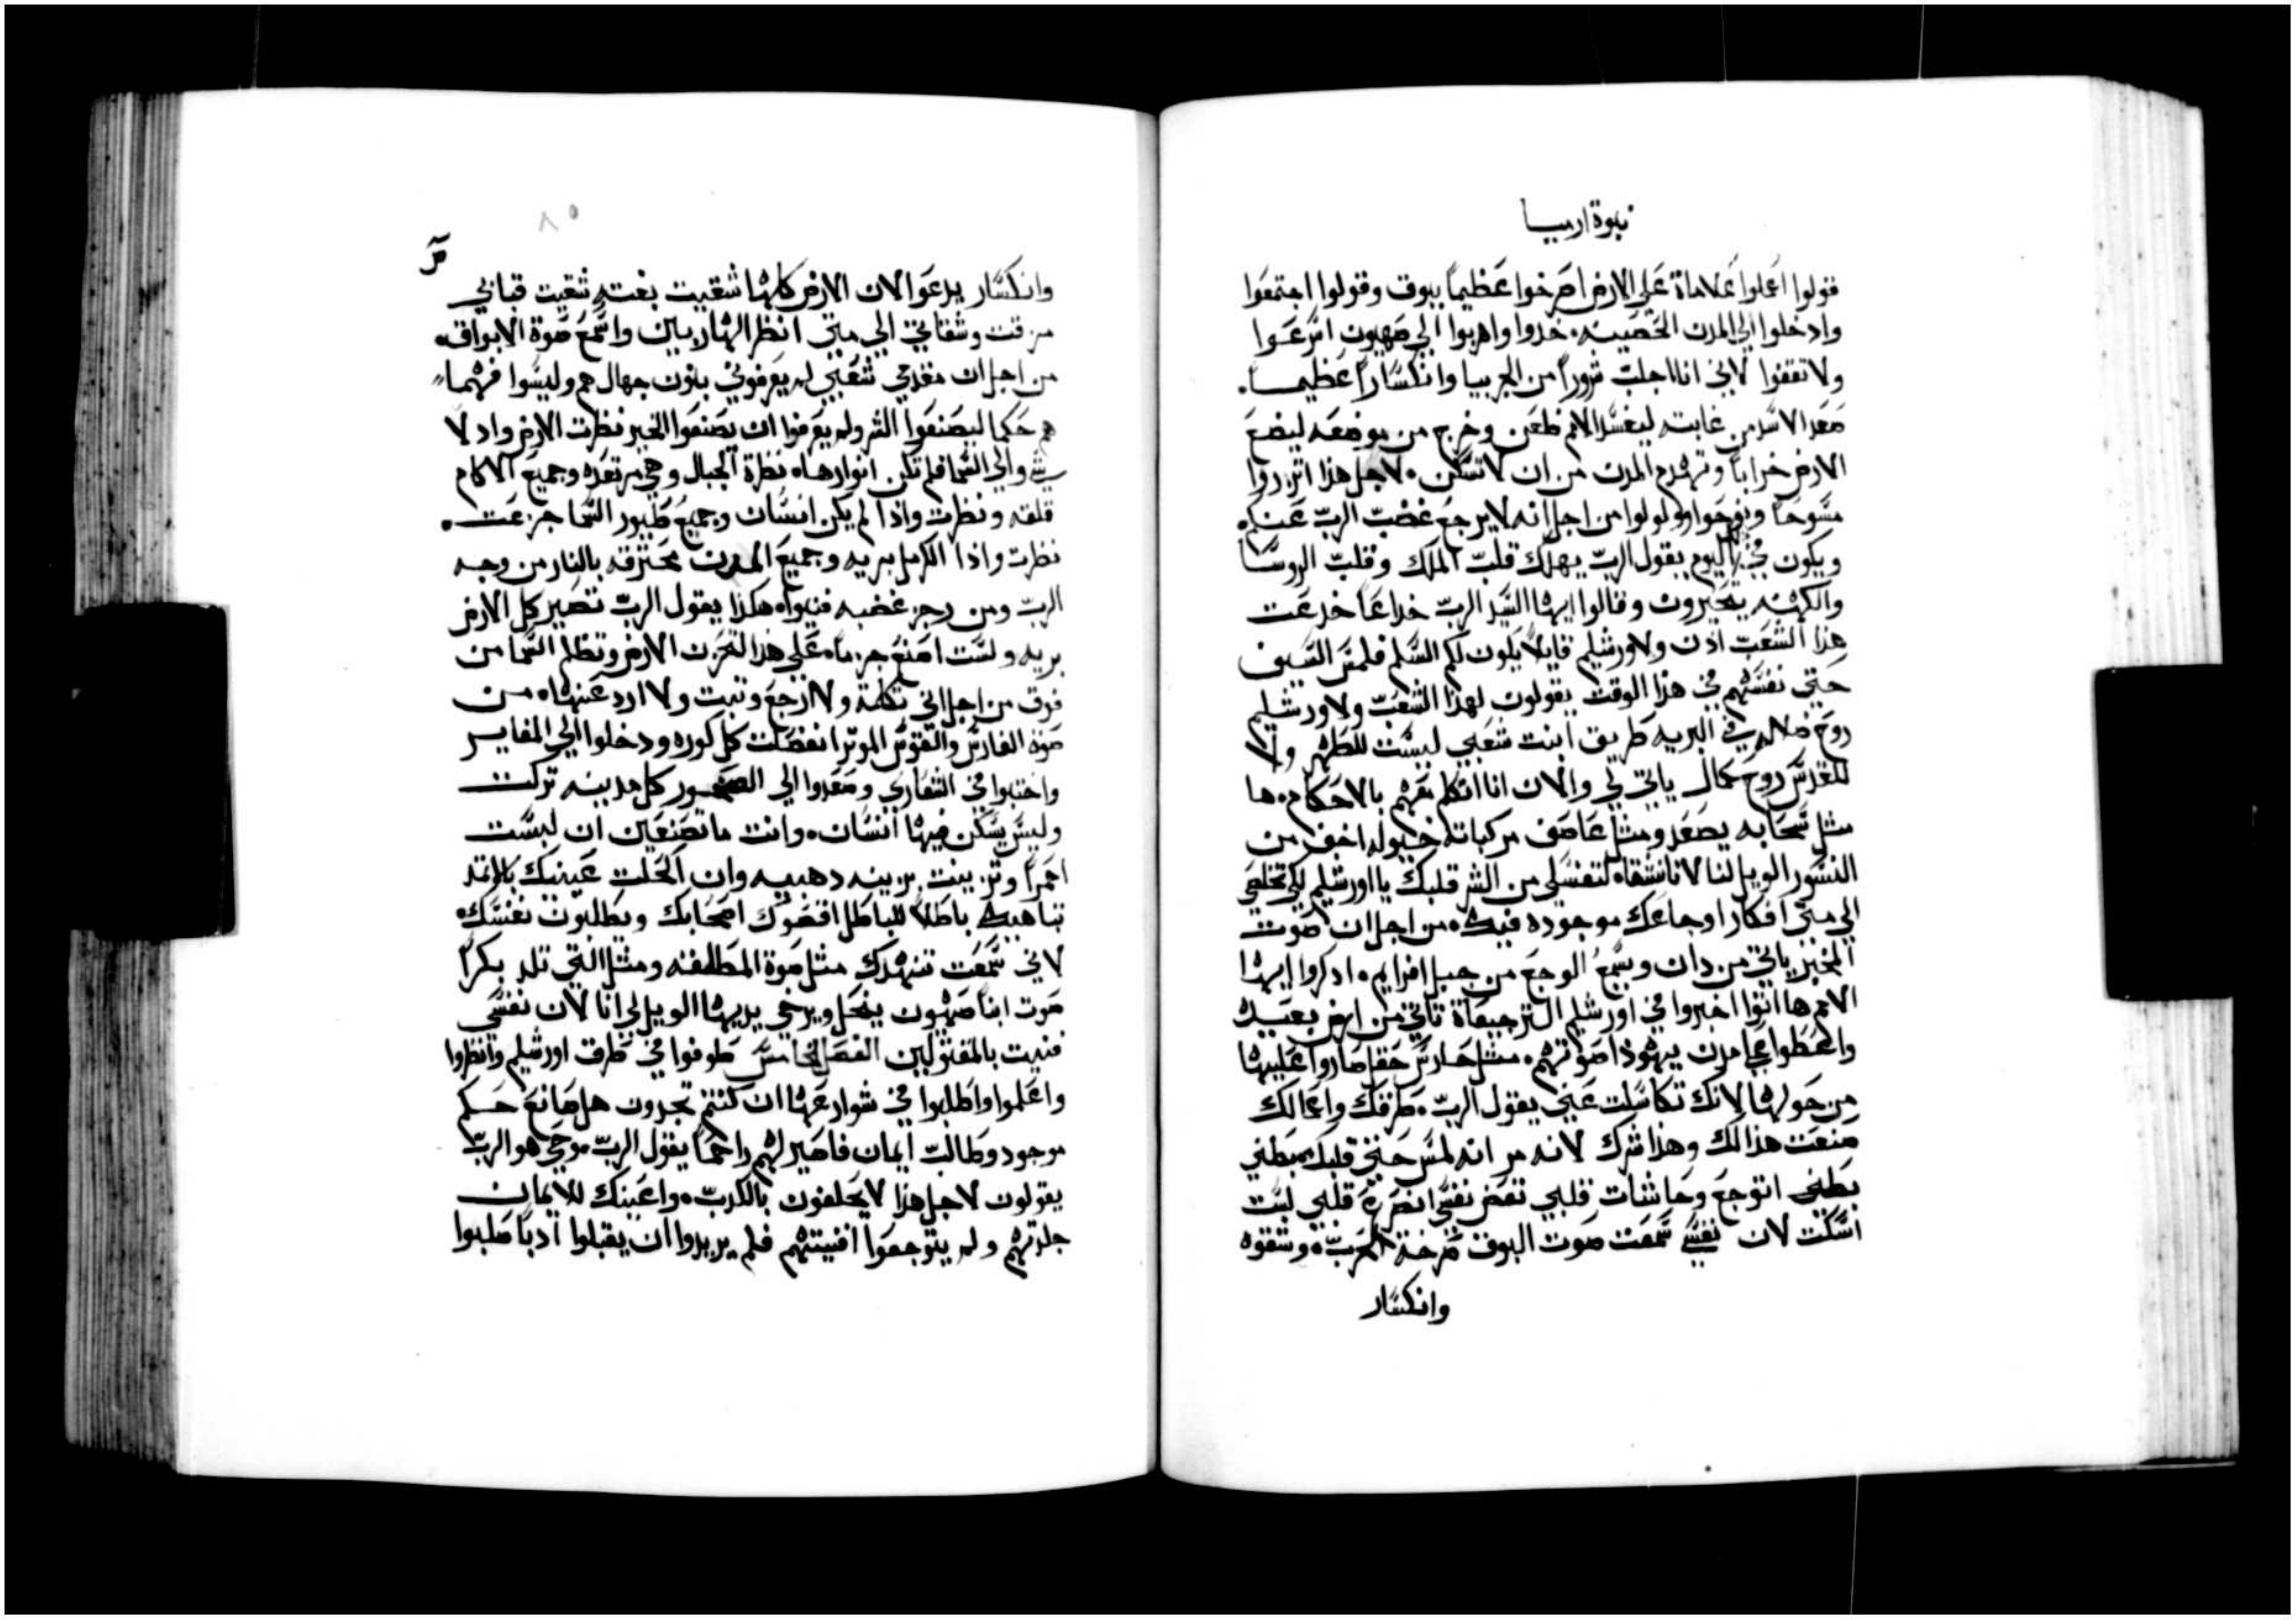 نبوة ارميا
قولوا اعملوا علاماة على الارض اصرخوا عظيماً ببوق وقولوا اجتمعوا
وادخلوا الي المدن الحصينه. خدوا واهربوا الي صهيون اسرعوا
ولا تقفوا لاني انا اجلب شروراً من الجربيا وانكساراً عظيماً.
صعد الاسد من غابته ليفسد الامم ظعن وخرج من موضعه ليضع
الارض خراباً وتهدم المدن من ان لا تسكن. لاجل هذا اتزروا
مسوحاً ونوحوا وولولوا من اجل انه لا يرجع غضب الرب عنكم
ويكون في ذلك اليوم يقول الرب يهلك قلب الملك وقلب الروسا
والكهنه يتحيرون وقالوا ايها السيد الرب خداعاً خدعت
هذا الشعب ادن ولاورشليم قايلاً يكون لكم السلم فلمس السيف
حتي نفسهم في هذا الوقت يقولون لهذا الشعب ولاورشليم
روح ضلاله في البريه طريق ابنت شعبي ليست للطهر ولا
للقدس روح كمال ياتي لي والان انا اتكلم معهم بالاحكام. ها
مثل سحابه يصعد ومثل عاصف مركباته خيوله اخف من
النسور الويل لنا لانا نشقاه لتغسلي من الشر قلبك يا اورشليم لكي تخلصي
الي متي افكار اوجاعك موجوده فيك. من اجل ان صوت
المخبر ياتي من دان ويسمع الوجع من جبل افرايم. ادكروا ايها
الامم ها اتوا اخبروا في اورشليم الترجيعاة تاتي من ارض بعيده
واعطوا علي مدن يهوذا صوتهم. مثل حارس حقل صاروا عليها
من حولها لانك تكاسلت عني يقول الرب. طرقك واعمالك
صنعت هذا لك وهذا شرك لانه مر انه لمس حتي قلبك بطني
بطني اتوجع وحاشات قلبي تفض نفسي انضرة قلبي لست
اسكت لان نفسي سمعت صوت البوق صرخة الحرب. وشقوه
وانكسار
٨٥
وانكسار يدعوا لان الارض كلها شقيت بغته شقيت قبابي
مزقت وشقايقي الي متي انظر الهاربين واسمع صوة الابواق.
من اجل ان مقدمي شعبي لم يعرفوني بنون جهال هم وليسوا فهما
هم حكما ليصنعوا الشر ولم يعرفوا ان يصنعوا الخير نظرت الارض واذ لا
شي والي السما فلم تكن انوارها. نظرة الجبال وهي مرتعده وجميع الاكام
قلقه ونظرت واذا لم يكن انسان وجميع طيور السما جزعت.
نظرت واذا الكرمل بريه وجميع المدن محترقه بالنار من وجه
الرب ومن رجز غضبه فنيوا. هكذا يقول الرب تصير كل الارض
بريه ولست اصنع جزماً. علي هذا لتحزن الارض وتظلم السما من
فوق من اجل اني تكلمة ولا ارجع وتبت ولا ارد عنها. من
صوة الفارس والقوس الموتر انفصلت كل كوره ودخلوا الي المغاير
واختبوا في الشعاري وصعدوا الي الصخور كل مدينه تركت
وليس يسكن فيها انسان. وانت ما تصنعين ان لبست
احمراً وتزينت بزينه دهبيه وان اكحلت عينيك بالاتمد
تباهيك باطلاً للباطل اقصوك اصحابك ويطلبون نفسك.
لاني سمعت تنهدك مثل صوة المطلقه ومثل التي تلد بكراً
صوت ابنة صهيون ينحل ويرخي يديها الويل لي انا لان نفسي
فنيت بالمقتولين الفصل الخامس طوفوا في طرق اورشليم وانظروا
واعلموا واطلبوا في شوارعها ان كنتم تجدون هل صانع حكم
موجود وطالب ايمان فاصير لهم راحماً يقول الرب. حي هو الرب
يقولون لاجل هذا لا يحلفون بالكدب. واعينك للايمان
جلدتهم ولم يتوجعوا افنيتهم فلم يريدوا ان يقبلوا ادباً صلبوا